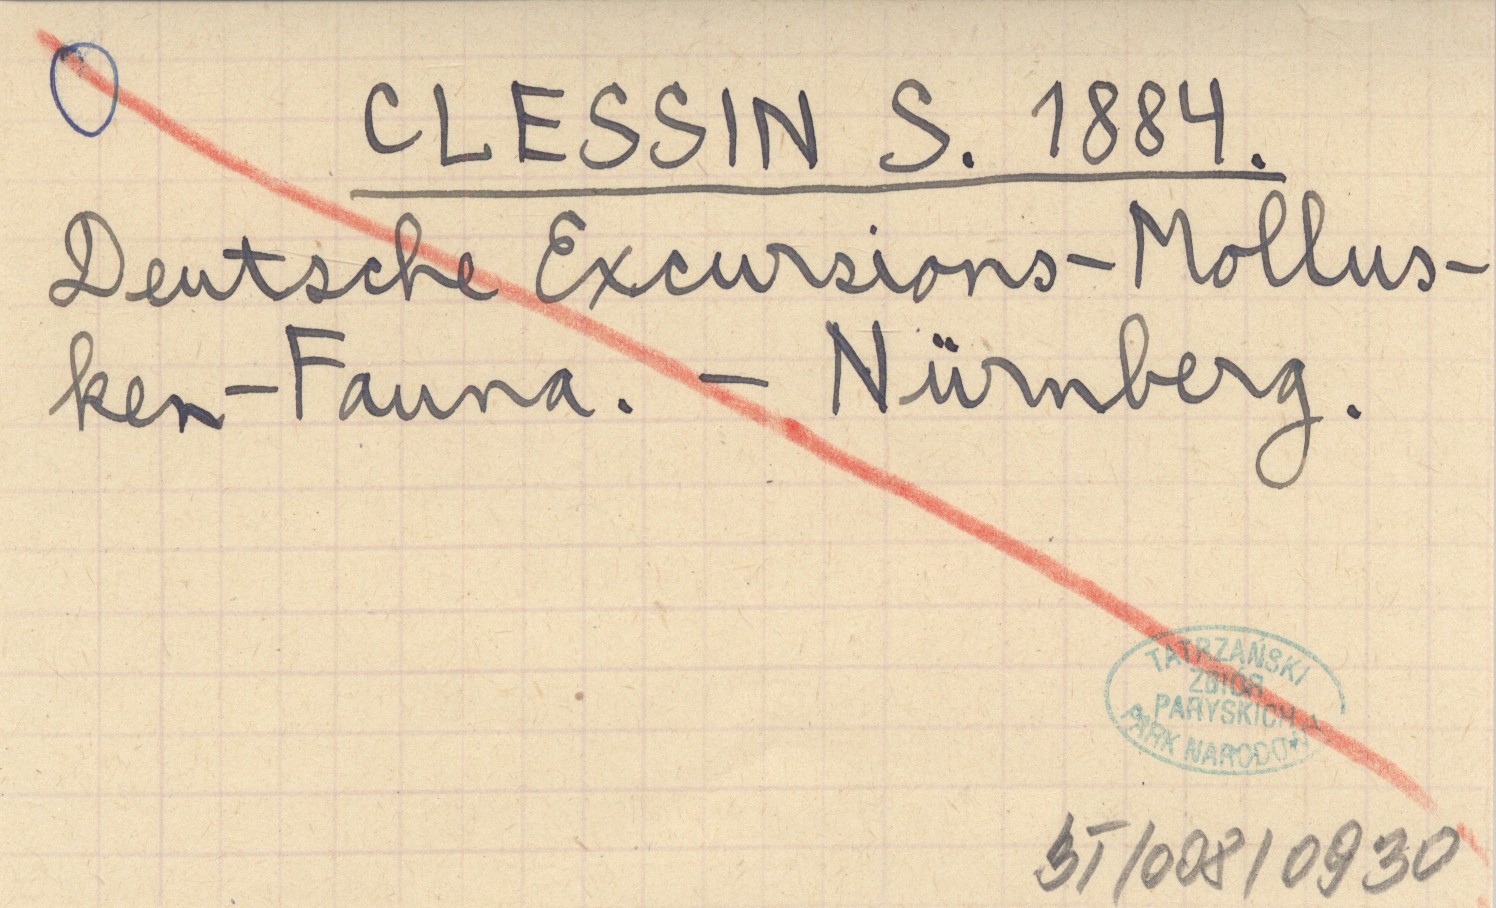 CLESSIN S. 1884.
Deutsche Excursions-Mollus-
ken-Fauna. – Nürnberg.
TATRZAŃSKI
ZBIÓR
PARYSKICH
PARK NARODOWY
/008/0930